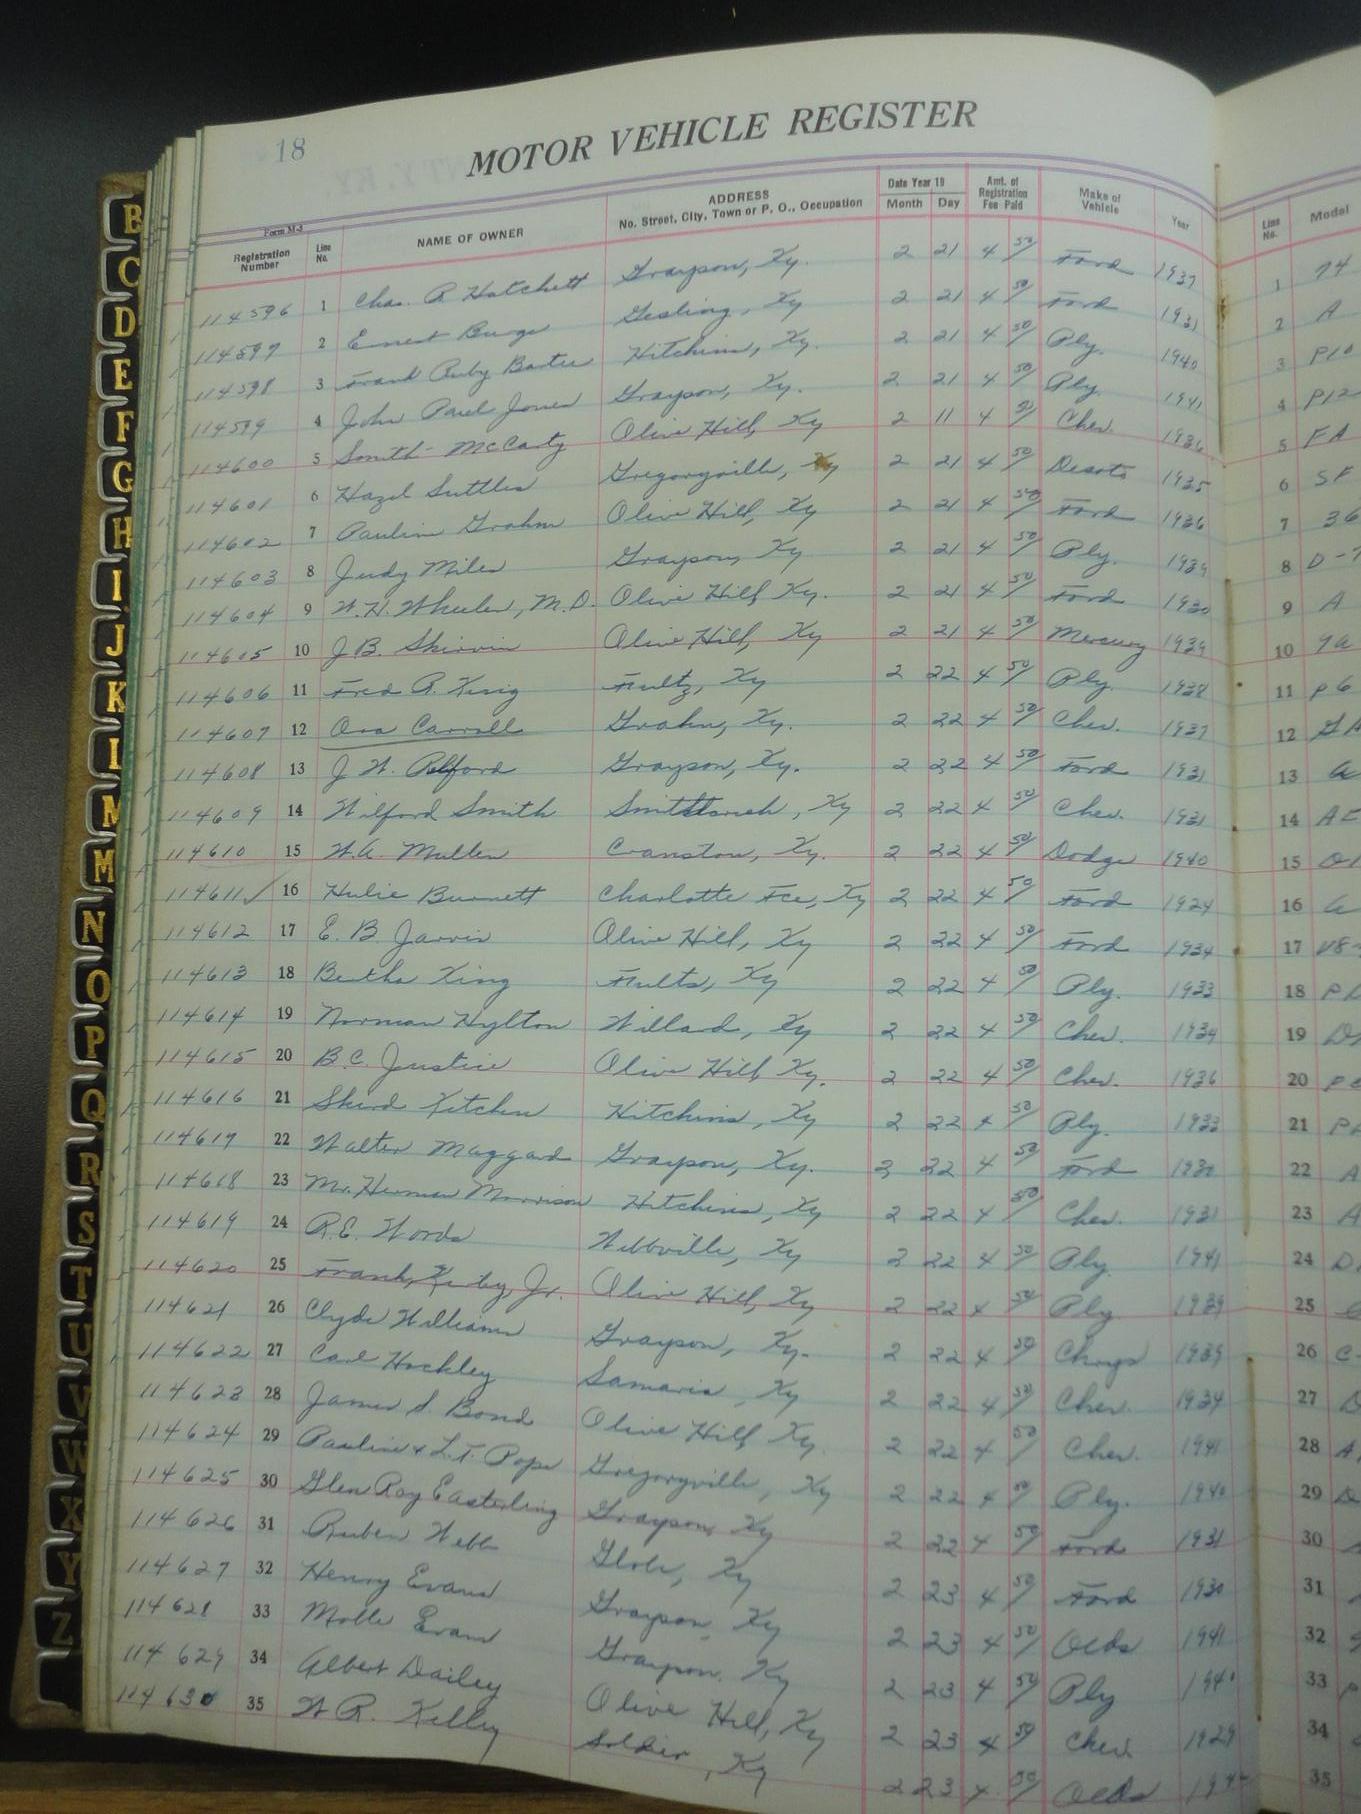 18
MOTOR VEHICLE REGISTER
Form M-3
Registration Number Line No. NAME OF OWNER ADDRESS No. Street, City, Town or P. O., Occupation Date Year 19 Month Day Amt. of Registration Fee Paid Make of Vehicle Year Line No. Model
114596 1 Chas. R Hatchett Grayson, Ky. 2 21 4 50/ Ford 1937 1 74
114597 2 Ernest Burge Gesling, Ky 2 21 4 50/ Ford 1931 2 A
114598 3 Frank Ruby Baxter Hitchins, Ky. 2 21 4 50/ Ply. 1940 3 P10
114599 4 John Paul Jones Grayson, Ky. 2 21 4 50/ Ply. 1941 4 P12
114600 5 Smith-McCarty Olive Hill, Ky 2 11 4 50/ Chev. 1936 5 FA
114601 6 Hazel Suttles Gregoryville, Ky 2 21 4 50/ Desoto 1935 6 SF
114602 7 Pauline Grahn Olive Hill, Ky 2 21 4 50/ Ford 1936 7 36
114603 8 Judy Miles Grayson, Ky 2 21 4 50/ Ply. 1939 8 D-
114604 9 W. H. Wheeler, M. D. Olive Hill, Ky. 2 21 4 50/ Ford 1930 9 A
114605 10 J B. Skirvin Olive Hill, Ky 2 21 4 50/ Mercury 1939 10 9a
114606 11 Fred R. King Fultz, Ky 2 22 4 50/ Ply. 1938 11 P6
114607 12 Ora Carroll Grahn, Ky. 2 22 4 50/ Chev. 1937 12 GA
114608 13 J W. Alford Grayson, Ky. 2 22 4 50/ Ford 1931 13 a
114609 14 Wilford Smith Ky 2 22 4 50/ Chev. 1931 14 AE
114610 15 W.A. Mullen Cranston, Ky. 2 22 4 50/ Dodge 1940 15
114611 ✓ 16 Hulie Burnett Charlotte Fce, Ky 2 22 4 50/ Ford 1924 16 a
114612 17 E. B Jarvis Olive Hill, Ky 2 22 4 50/ Ford 1934 17 V8-
114613 18 Bertha King Fults, Ky 2 22 4 50/ Ply. 1933 18
114614 19 Norman Hylton Willard, Ky 2 22 4 50/ Chev. 1934 19
114615 20 B.C. Justice Olive Hill, Ky. 2 22 4 50/ Chev. 1936 20
114616 21 Kitchen Hitchins, Ky 2 22 4 50/ Ply. 1933 21
114617 22 Walter Maggard Grayson, Ky. 2 22 4 50/ Ford 1930 22 A
114618 23 Mr. Herman Morrison Hitchins, Ky 2 22 4 50/ Chev. 1931 23 A
114619 24 R.E. Woods Webbville, Ky 2 22 4 50/ Ply. 1941 24
114620 25 Frank Kirby, Jr. Olive Hill, Ky 2 22 4 50/ Ply. 1939 25
114621 26 Clyde Williams Grayson, Ky. 2 22 4 50/ Chrys 1939 26 C-
114622 27 Carl Hockley Samaria, Ky 2 22 4 50/ Chev. 1934 27
114623 28 James S. Bond Olive Hill, Ky. 2 22 4 50/ Chev. 1941 28
114624 29 Pauline & L.T. Pope Gregoryville, Ky 2 22 4 50/ Ply. 1940 29
114625 30 Glen Roy Easterling Grayson, Ky 2 22 4 50/ Ford 1931 30
114626 31 Ruben Webb Globe, Ky 2 23 4 50/ Ford 1930 31
114627 32 Henry Evans Grayson, Ky 2 23 4 50/ Olds 1941 32
114628 33 Evans Grayson, Ky 2 23 4 50/ Ply 1940 33
114629 34 Albert Dailey Olive Hill, Ky 2 23 4 50/ Chev. 1929 34
114630 35 W R. Kelley Soldier, Ky 2 23 4 50/ Olds 35
B
C
D
E
F
G
H
I
J
K
L
M
M
N
O
P
Q
R
S
T
U
V
W
X
Y
Z